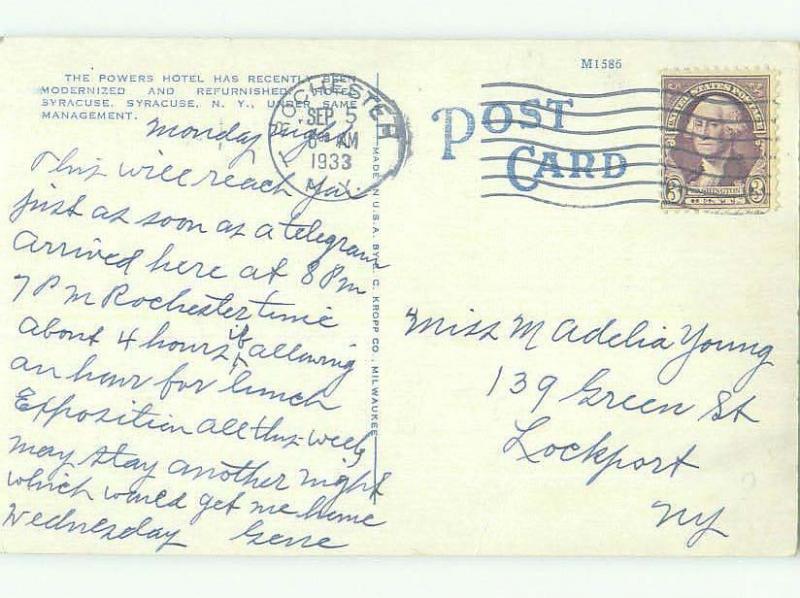 THE POWERS HOTEL HAS RECENTLY BEEN
MODERNIZED AND REFURNISHED. HOTEL
SYRACUSE, SYRACUSE, N. Y., UNDER SAME
MANAGEMENT.
Monday night
This will reach you
just as soon as a telegram
Arrived here at 8 Pm
7 P M Rochester time
about 4 hours if allowing
an hour for lunch
Exposition all this week
may stay another night
which would get me home
Wednesday Gene
MADE IN U.S.A. BY E. C. KROPP CO., MILWAUKEE
ROCHESTER
SEP 5
AM
1933
N.Y.
M1586
POST
CARD
UNITED STATES POSTAGE
3 WASHINGTON 3
Miss M Adelia Young
139 Green St
Lockport
NY